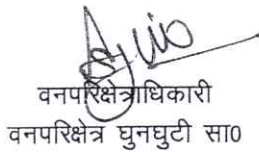 वनपरिक्षेत्राधिकारी
वनपरिक्षेत्र घुनघुटी सा0